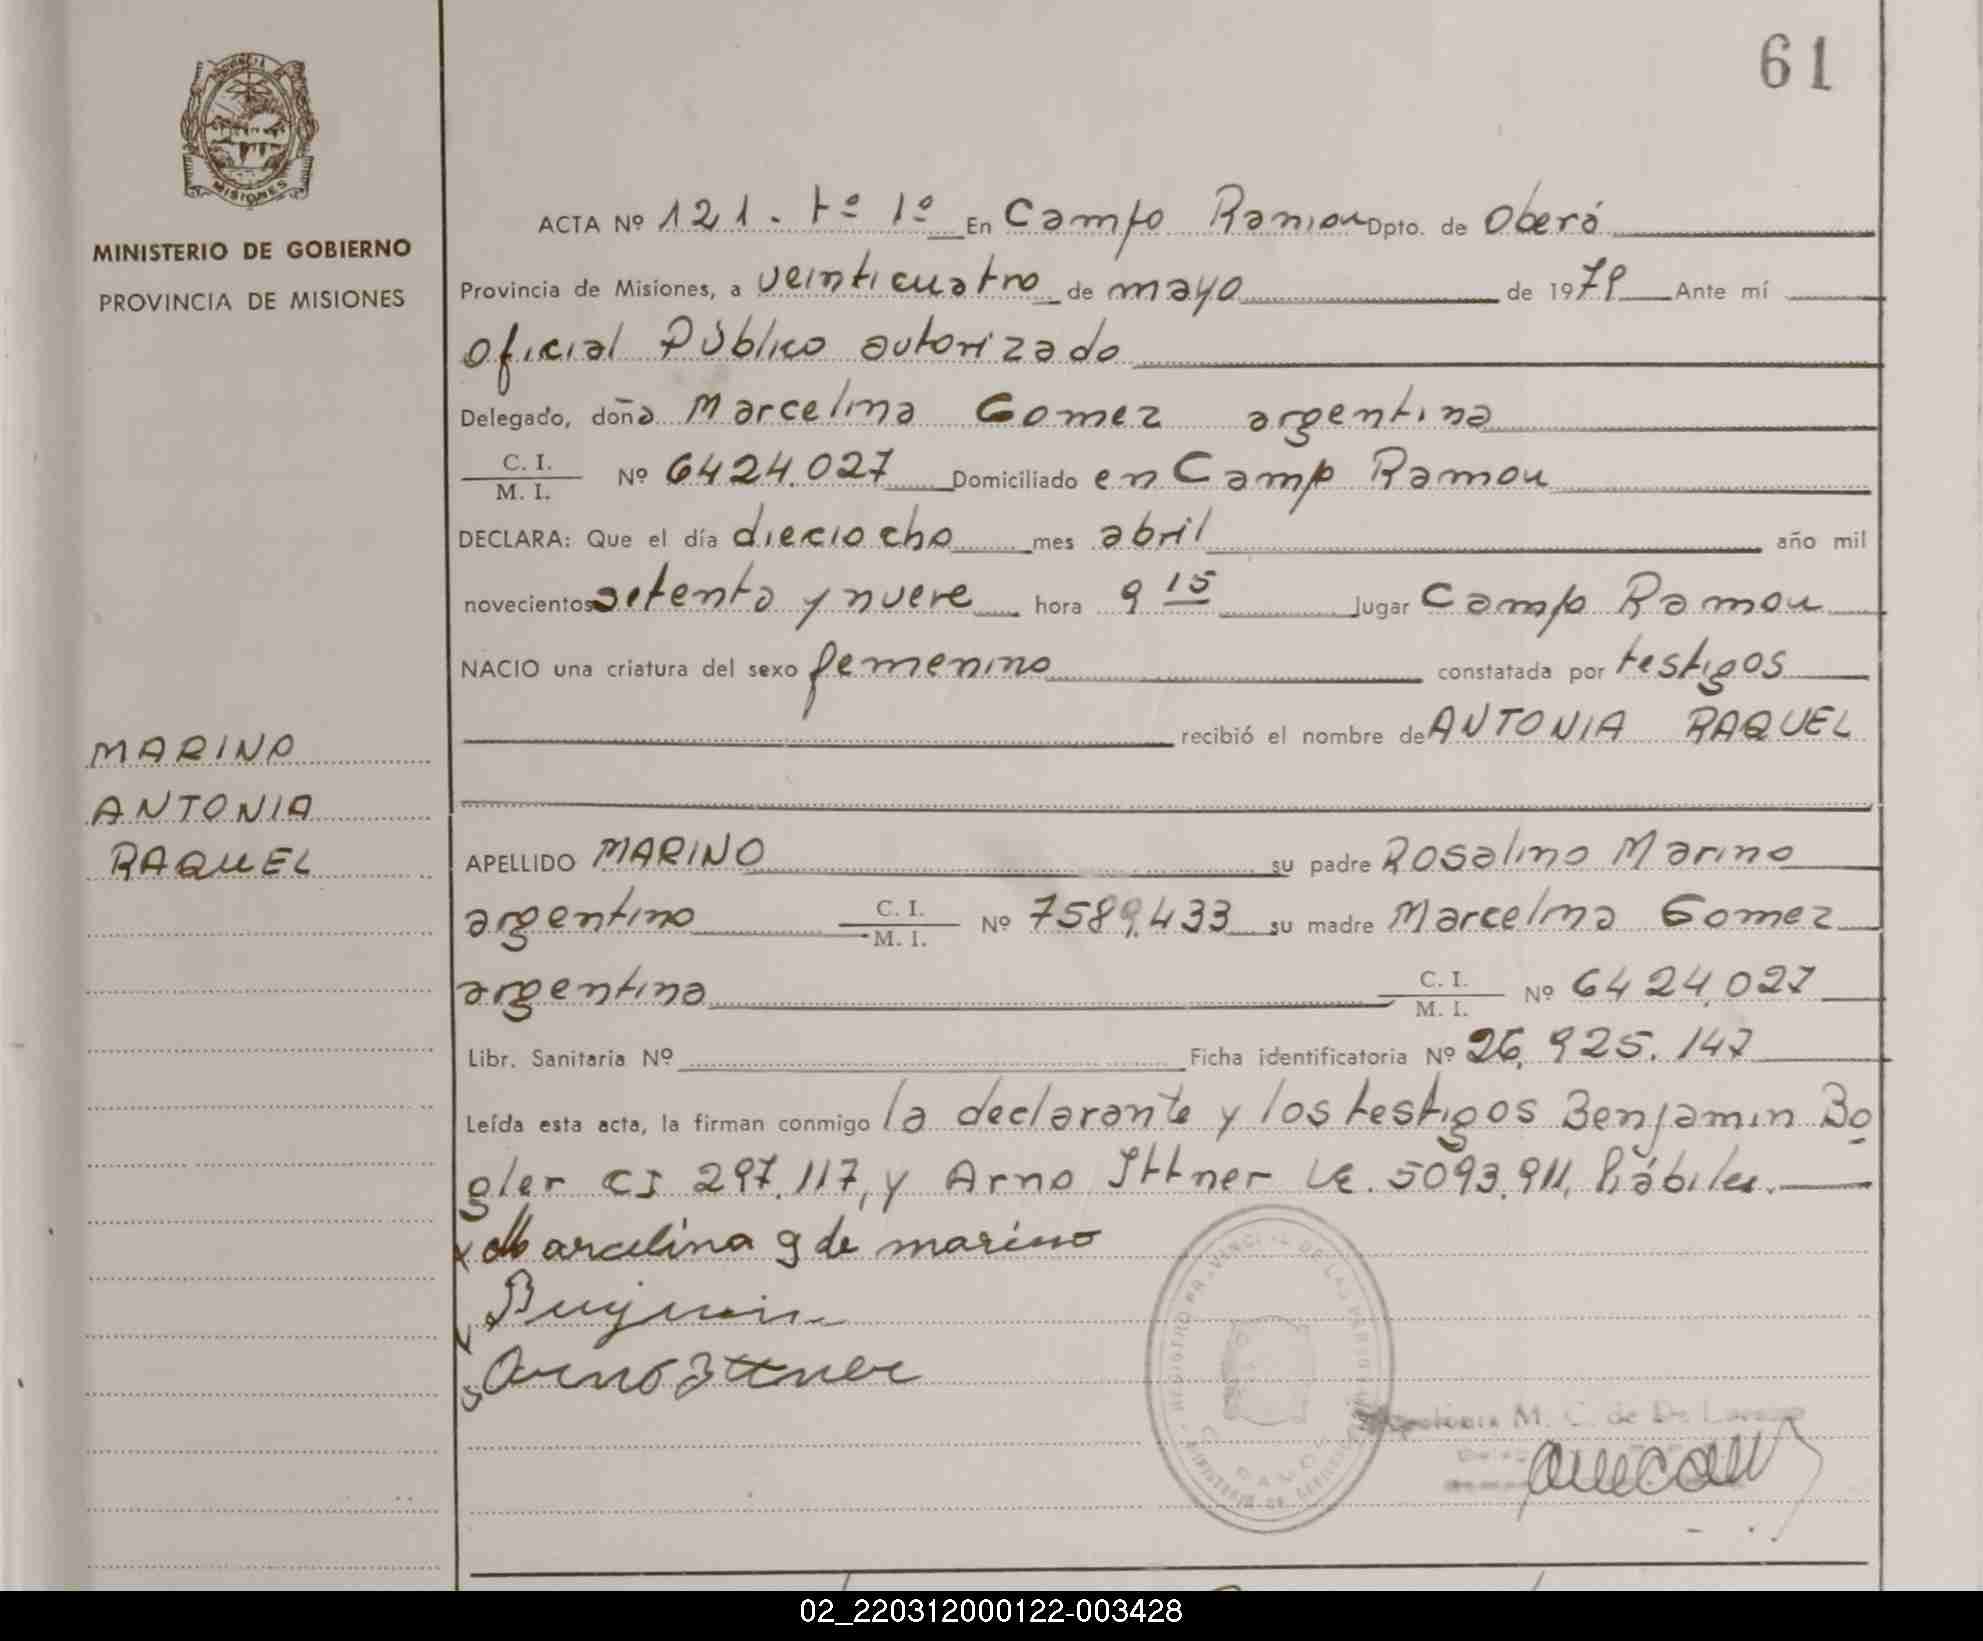 61
PROVINCIA DE
MISIONES
MINISTERIO DE GOBIERNO
PROVINCIA DE MISIONES
ACTA Nº 121. tº 1º En Campo Ramon Dpto. de Oberá
Provincia de Misiones, a veinticuatro de mayo de 1979 Ante mí
Oficial Público autorizado
Delegado, doña Marcelina Gomez argentina
C. I.
M. I. Nº 6424.027 Domiciliado en Campo Ramon
DECLARA: Que el día dieciocho mes abril año mil
novecientos setenta y nueve hora 9 15 lugar Campo Ramon
NACIO una criatura del sexo femenino constatada por testigos
recibió el nombre de ANTONIA RAQUEL
MARINO
ANTONIA
RAQUEL
APELLIDO MARINO su padre Rosalino Marino
argentino C. I.
M. I. Nº 7589.433 su madre Marcelina Gomez
argentina C. I.
M. I. Nº 6424.027
Libr. Sanitaria Nº Ficha identificatoria Nº 26.925.147
Leída esta acta, la firman conmigo la declarante y los testigos Benjamin Bo
gler CI 297.117, y Arno Ittner LE. 5093.911, hábiles.
x Marcelina g de marino
x Benjamin
Arno Ittner
REGISTRO PROVINCIAL DE LAS PERSONAS
M. C. de De
02_220312000122-003428